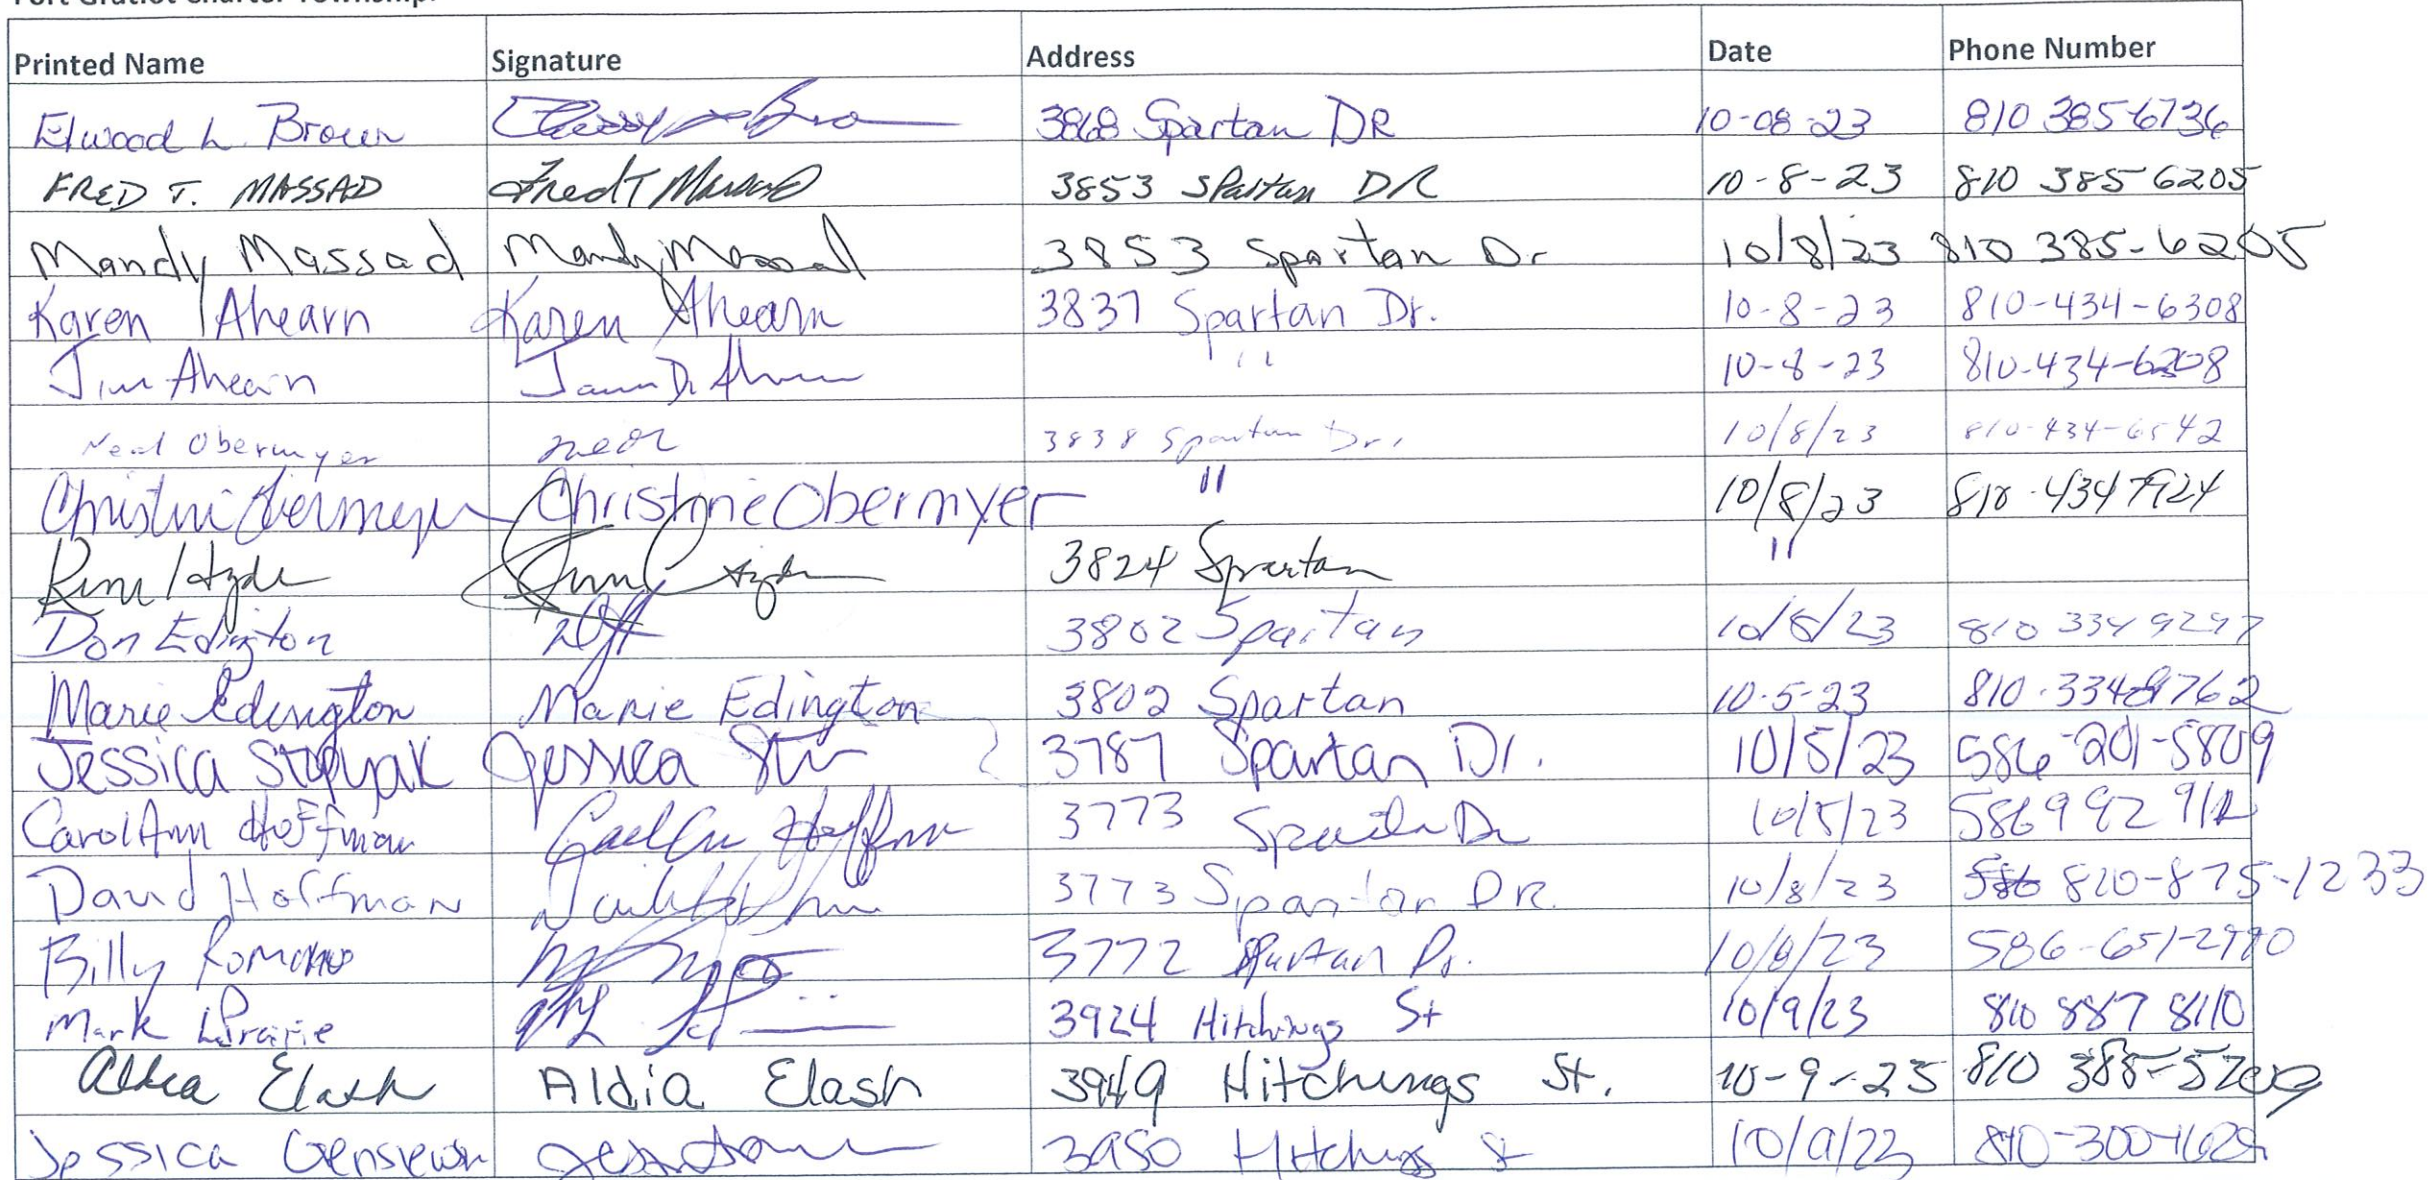 Fort Gratiot Charter Township.
Printed Name Signature Address Date Phone Number
Elwood L. Brown 3868 Spartan DR 10-08-23 810 385 6736
FRED T. MASSAD Fred T Massad 3853 Spartan DR 10-8-23 810 385 6205
Mandy Massad Mandy Massad 3853 Spartan Dr 10/8/23 810 385-6205
Karen Ahearn Karen Ahearn 3837 Spartan Dr. 10-8-23 810-434-6308
Jim Ahearn " 10-8-23 810-434-6208
Neal Obermyer 3838 Spartan Dr. 10/8/23 810-434-6542
Christine Obermyer Christine Obermyer " 10/8/23 810-434
3824 Spartan "
Don Edington 3802 Spartan 10/8/23 810 334 9297
Marie Edington Marie Edington 3802 Spartan 10-5-23 810-334
Jessica Jessica 3787 Spartan Dr. 10/5/23 586-201-5809
CarolAnn Hoffman 3773 Dr 10/5/23 586 992
David Hoffman 3773 Spartan DR. 10/8/23 810-875-1233
Billy Romano 3772 Spartan Dr. 10/8/23 586-651-
Mark 3924 Hitchings St 10/9/23 810 887 8110
Elash Aldia Elash 3949 Hitchings St. 10-9-23 810
Jessica 3950 Hitchings St 10/9/23 810-300-